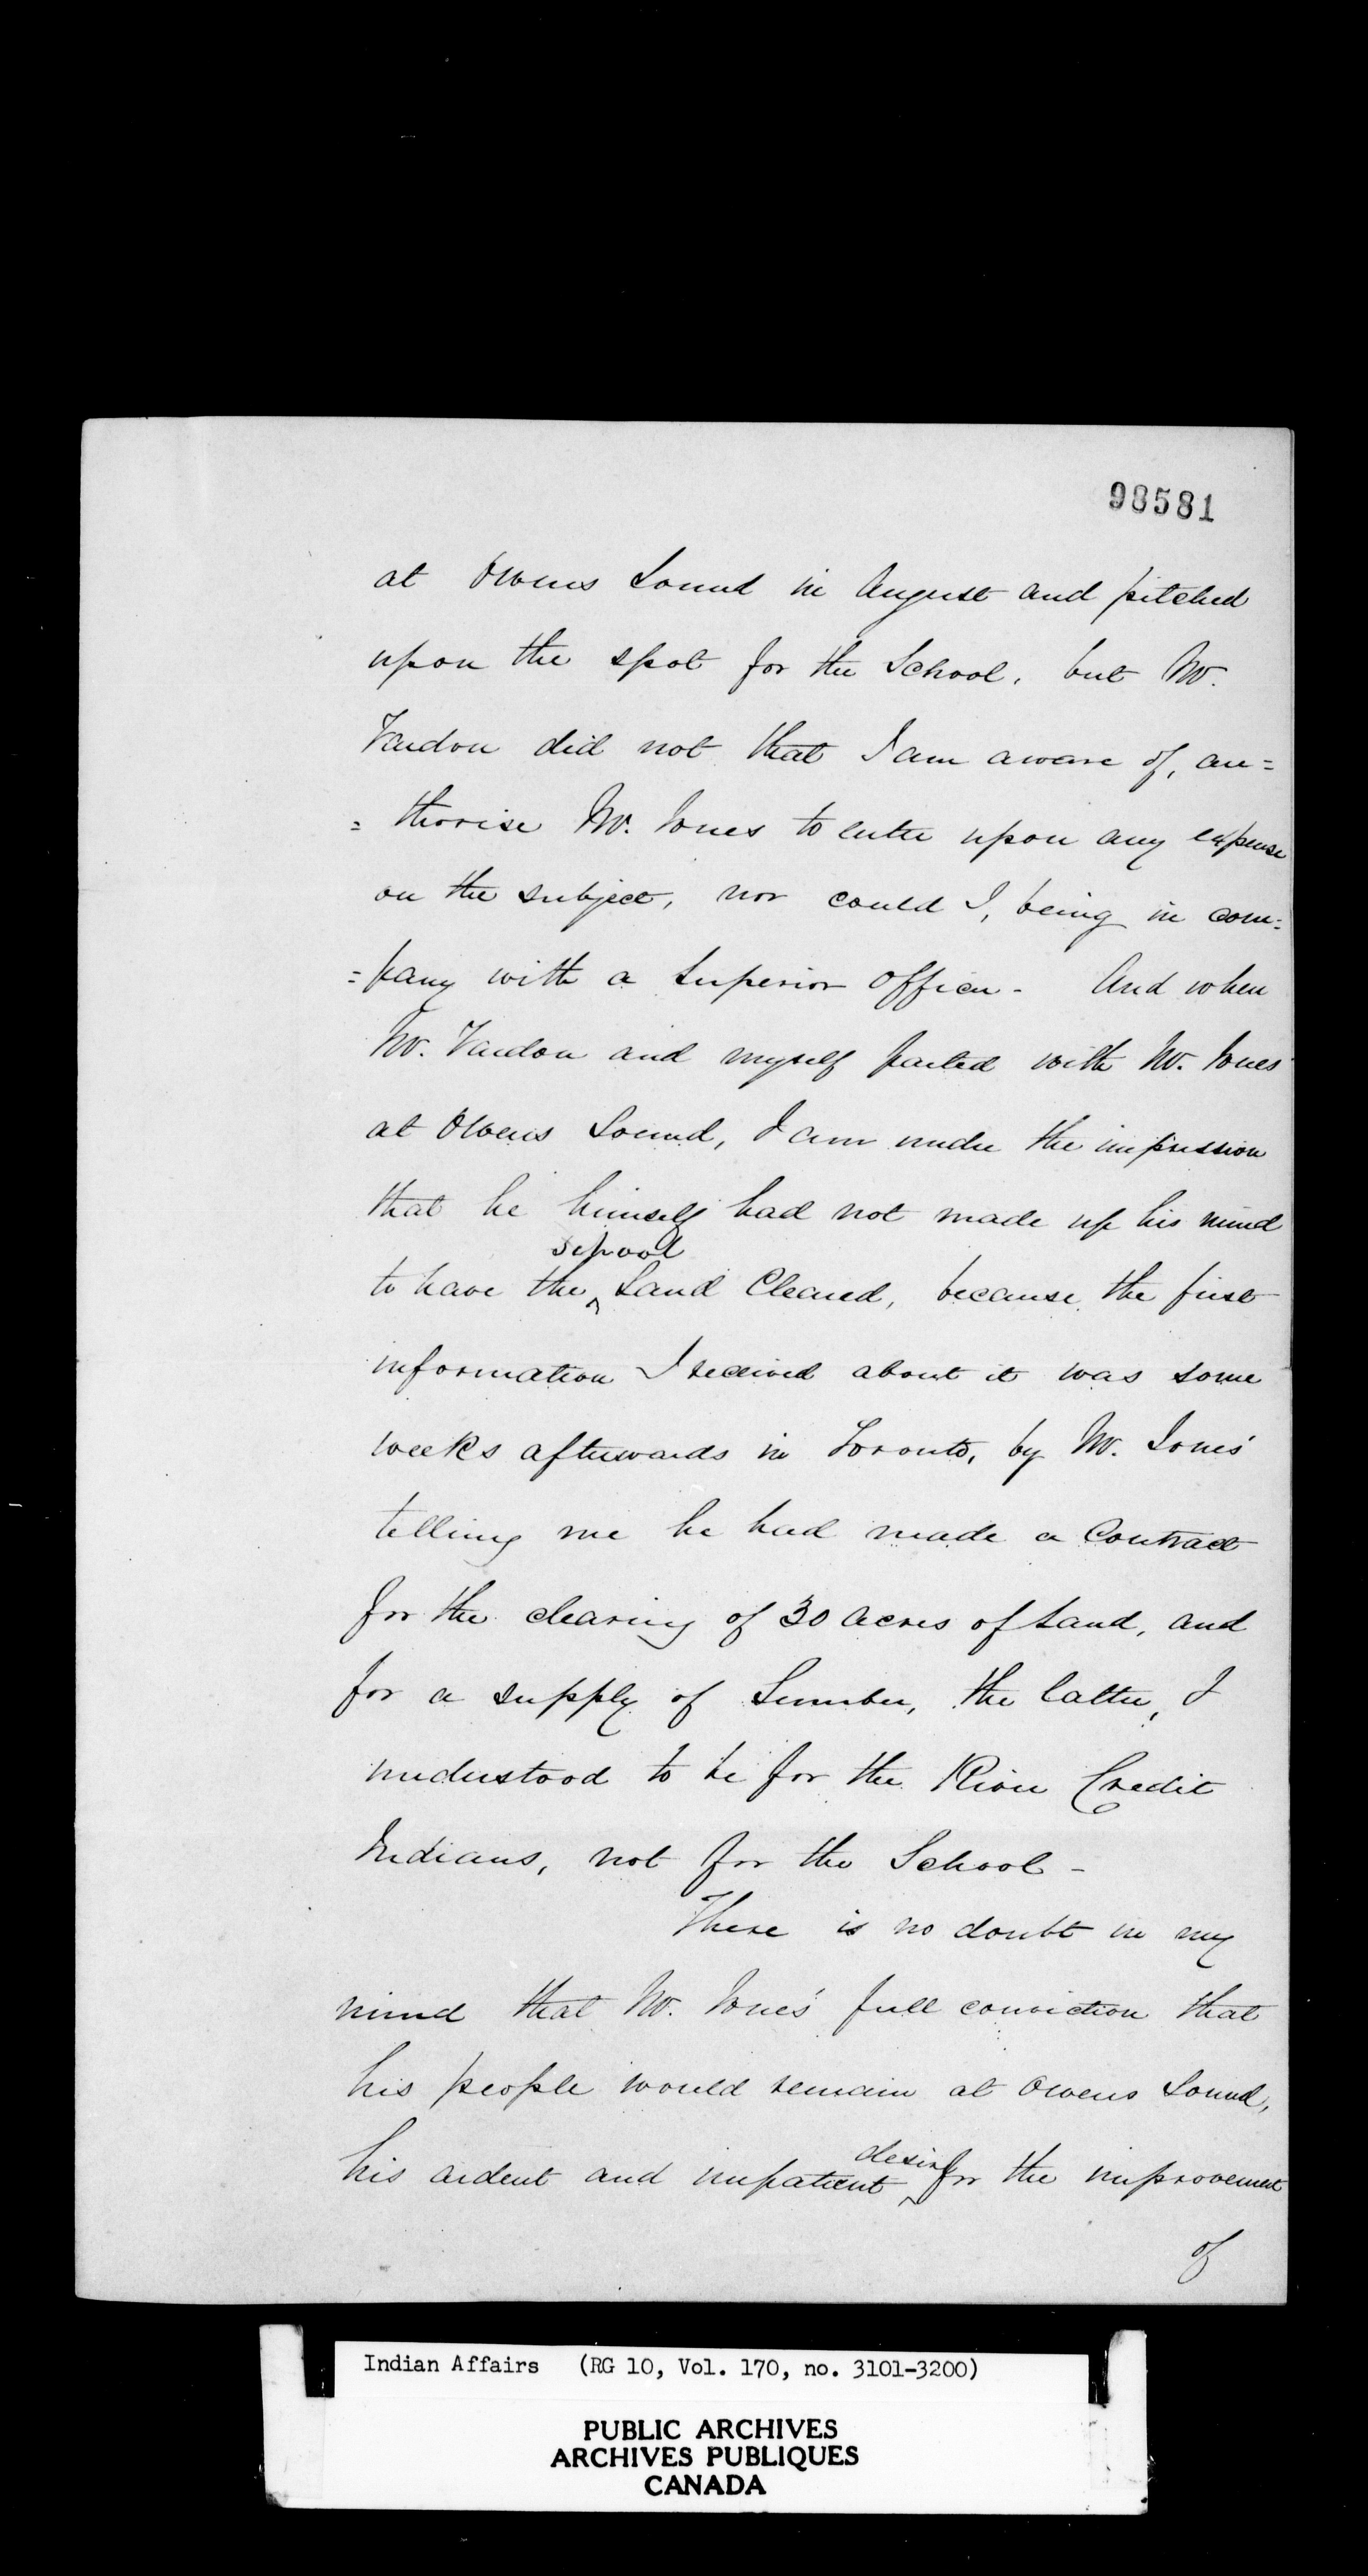 98581
at Owens Sound in August and pitched
upon the spot for the School, but Mr.
Vardon did not that I am aware of, au=
=thorise Mr. Jones to enter upon any expense
on the subject, nor could I, being in com=
=pany with a Superior Officer - And when
Mr. Vardon and myself parted with Mr. Jones
at Owens Sound, I am under the impression
that he himself had not made up his mind
to have the ^ School Land Cleared, because the first
information I received about it was some
weeks afterwards in Toronto, by Mr. Jones'
telling me he had made a Contract
for the clearing of 30 Acres of Land, and
for a supply of Lumber, the latter, I
understood to be for the River Credit
Indians, not for the School -
There is no doubt in my
mind that Mr. Jones' full conviction that
his people would remain at Owens Sound,
his ardent and impatient ^ desire for the improvement
of
Indian Affairs (RG 10, Vol. 170, no. 3101-3200)
PUBLIC ARCHIVES
ARCHIVES PUBLIQUES
CANADA